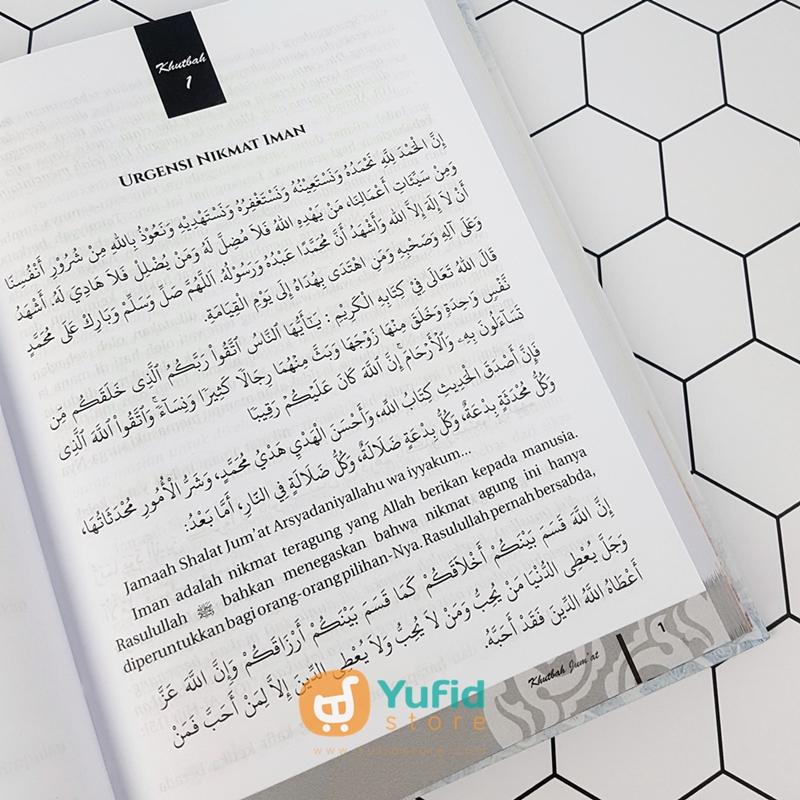 Khutbah
1
URGENSI NIKMAT IMAN
إِنَّ الْحَمْدَ لِلَّهِ نَحْمَدُهُ وَنَسْتَعِينُهُ وَنَسْتَغْفِرُهُ وَنَسْتَهْدِيْهِ وَنَعُوْذُ بِاللهِ مِنْ شُرُوْرِ أَنْفُسِنَا
وَمِنْ سَيِّئَاتِ أَعْمَالِنَا، مَنْ يَهْدِهِ اللهُ فَلَا مُضِلَّ لَهُ وَمَنْ يُضْلِلْ فَلَا هَادِيَ لَهُ. أَشْهَدُ
أَنْ لَا إِلَهَ إِلاَّ الله وَأَشْهَدُ أَنَّ مُحَمَّدًا عَبْدُهُ وَرَسُوْلُهُ. اَللَّهُمَّ صَلِّ وَسَلِّمْ وَبَارِكْ عَلَى مُحَمَّدٍ
وَعَلَى آلِهِ وَصَحْبِهِ وَمَنِ اهْتَدَى بِهُدَاهُ إِلَى يَوْمِ الْقِيَامَةِ.
قَالَ اللهُ تَعَالَى فِيْ كِتَابِهِ الْكَرِيْمِ : يَـٰٓأَيُّهَا ٱلنَّاسُ ٱتَّقُوا۟ رَبَّكُمُ ٱلَّذِى خَلَقَكُم مِّن
نَّفْسٍ وَٰحِدَةٍ وَخَلَقَ مِنْهَا زَوْجَهَا وَبَثَّ مِنْهُمَا رِجَالًا كَثِيرًا وَنِسَآءً ۚ وَٱتَّقُوا۟ ٱللَّهَ ٱلَّذِى
تَسَآءَلُونَ بِهِۦ وَٱلْأَرْحَامَ ۚ إِنَّ ٱللَّهَ كَانَ عَلَيْكُمْ رَقِيبًا
فَإِنَّ أَصْدَقَ الْحَدِيثِ كِتَابُ اللهِ، وَأَحْسَنَ الْهَدْيِ هَدْيُ مُحَمَّدٍ، وَشَرُّ الْأُمُورِ مُحْدَثَاتُهَا،
وَكُلُّ مُحْدَثَةٍ بِدْعَةٌ، وَكُلُّ بِدْعَةٍ ضَلَالَةٌ، وَكُلُّ ضَلَالَةٍ فِي النَّارِ، أَمَّا بَعْدُ:
Jamaah Shalat Jum'at Arsyadaniyallahu wa iyyakum...
Iman adalah nikmat teragung yang Allah berikan kepada manusia.
Rasulullah ﷺ bahkan menegaskan bahwa nikmat agung ini hanya
diperuntukkan bagi orang-orang pilihan-Nya. Rasulullah pernah bersabda,
إِنَّ اللهَ قَسَمَ بَيْنَكُمْ أَخْلَاقَكُمْ كَمَا قَسَمَ بَيْنَكُمْ أَرْزَاقَكُمْ وَإِنَّ اللهَ عَزَّ
وَجَلَّ يُعْطِي الدُّنْيَا مَنْ يُحِبُّ وَمَنْ لَا يُحِبُّ وَلَا يُعْطِي الدِّيْنَ إِلاَّ لِمَنْ أَحَبَّ فَمَنْ
أَعْطَاهُ اللهُ الدِّيْنَ فَقَدْ أَحَبَّهُ.
Khutbah Jum'at
1
Yufid
store
www.yufidstore.com